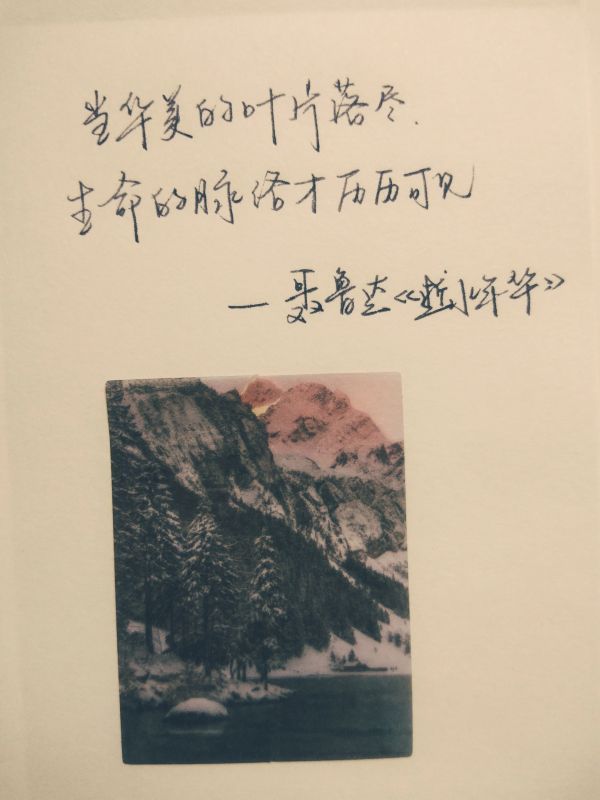 当华美的叶片落尽,
生命的脉络才历历可见
—聂鲁达《水年华》